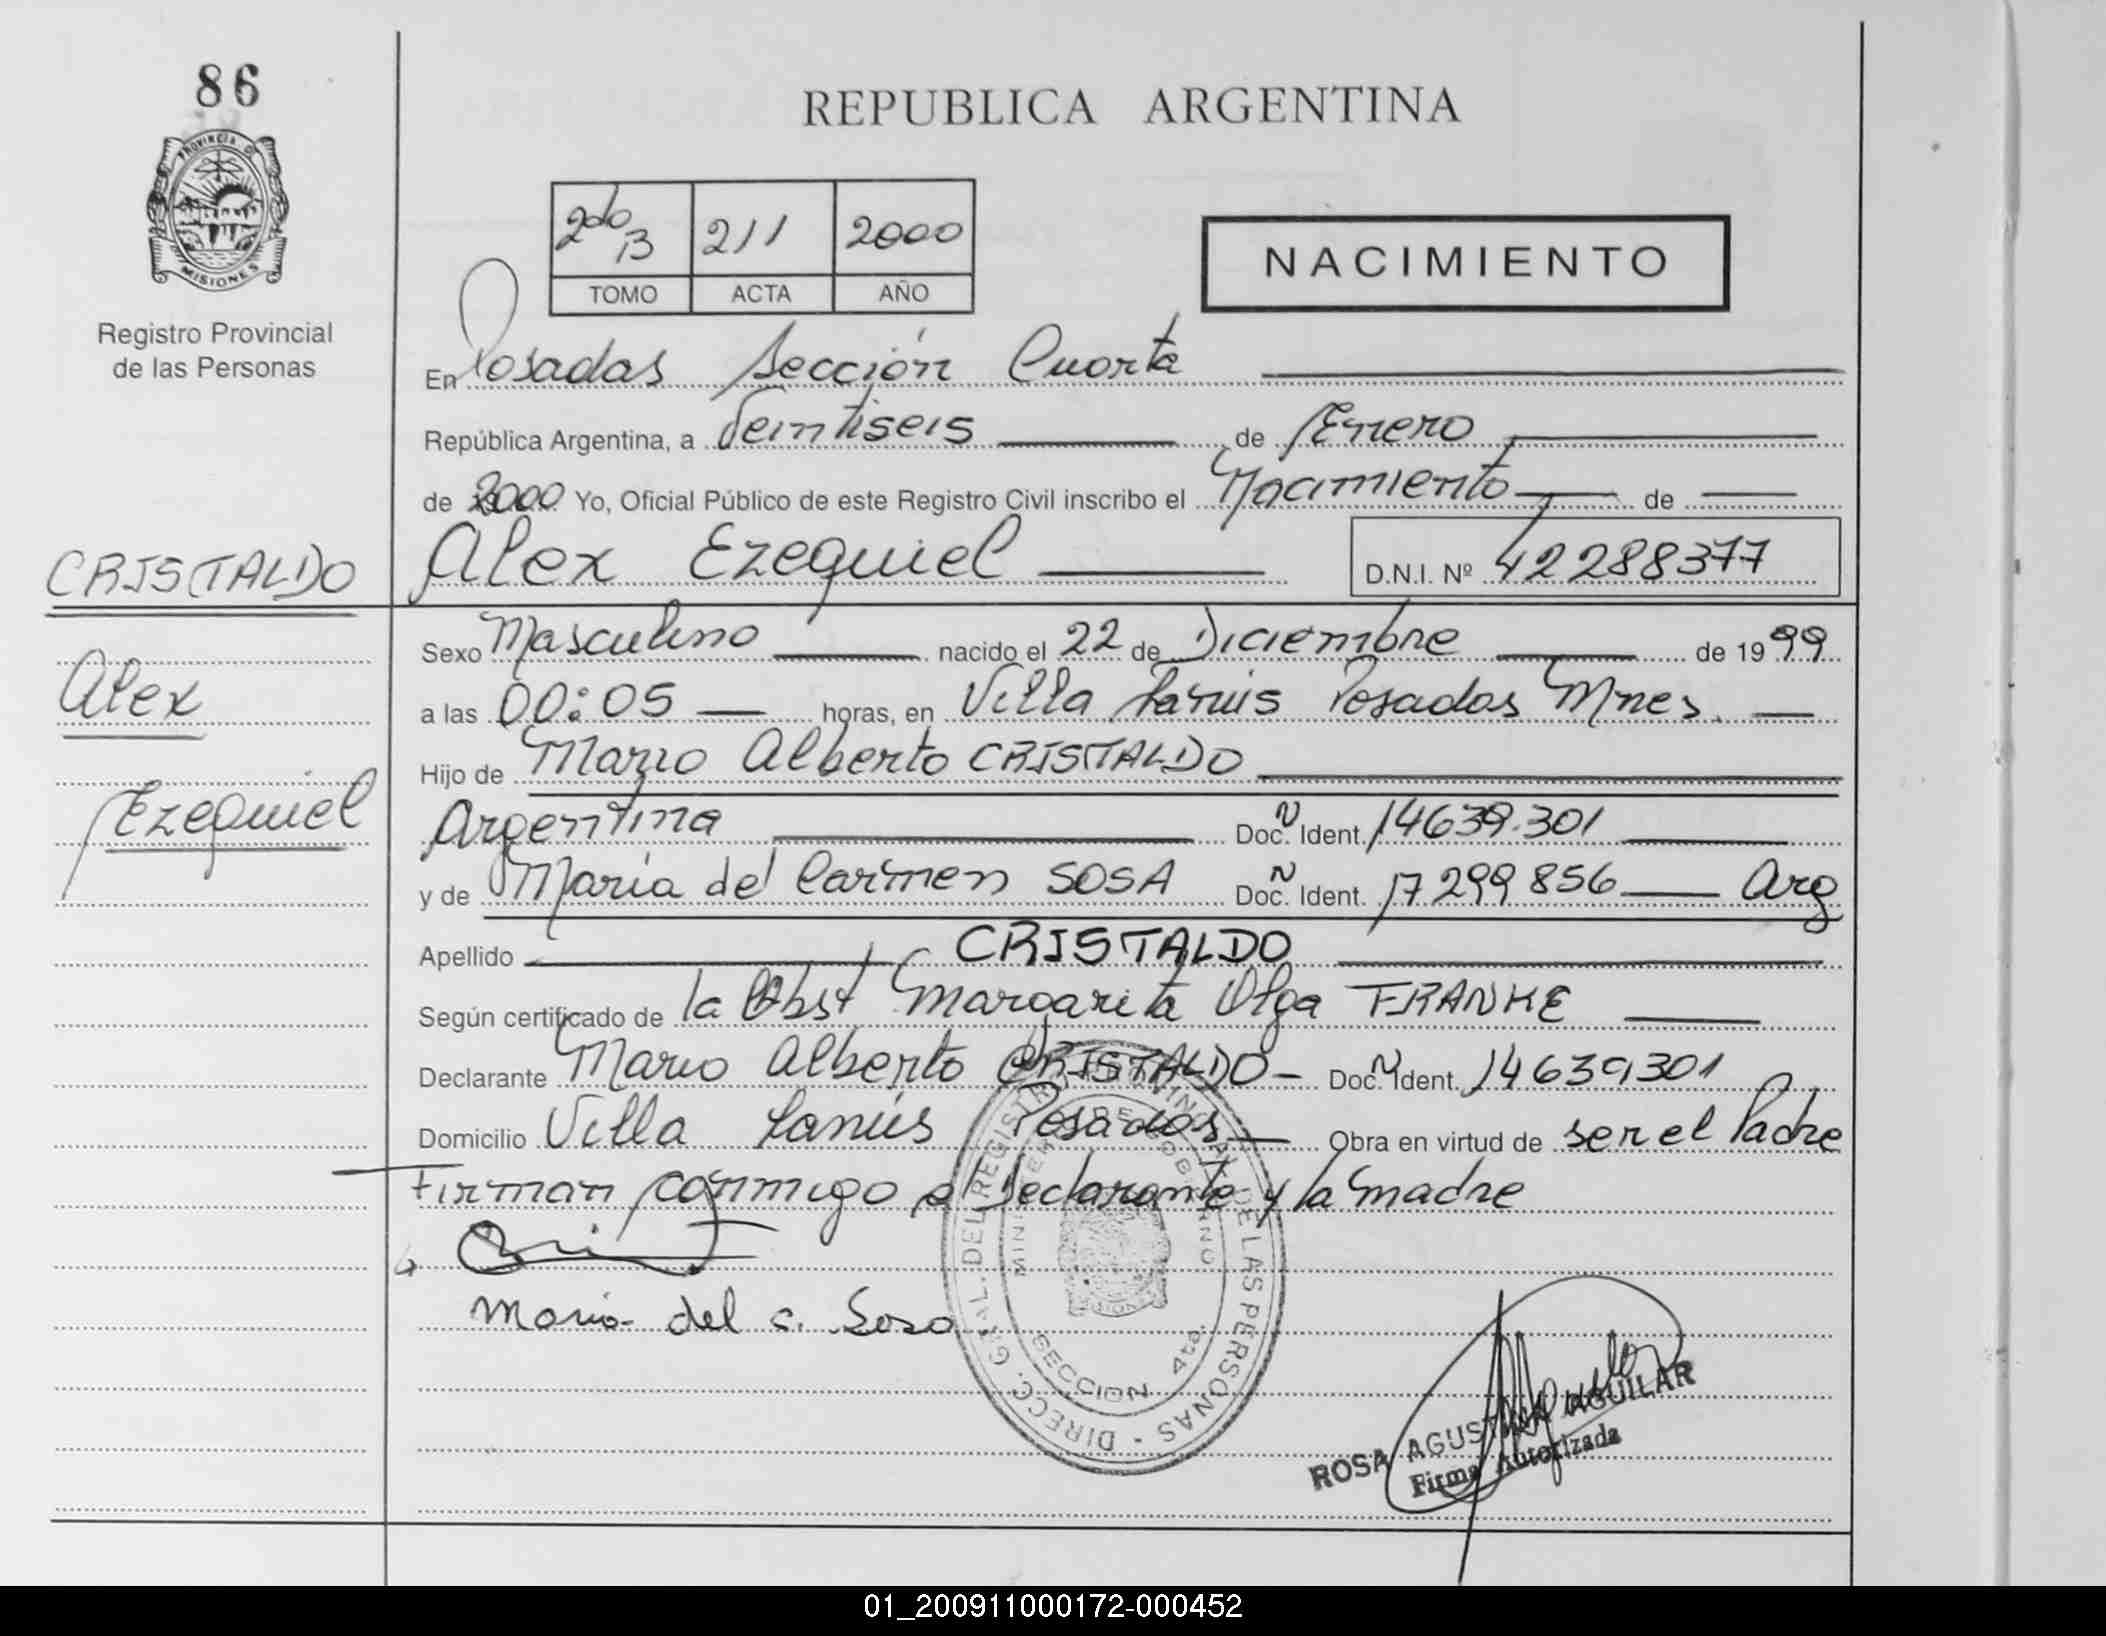 86
PROVINCIA D
MISIONES
Registro Provincial
de las Personas
REPUBLICA ARGENTINA
2do B 211 2000
TOMO ACTA AÑO
NACIMIENTO
En Posadas Sección Cuarta
República Argentina, a Veintiseis de Enero
de 2000 Yo, Oficial Público de este Registro Civil inscribo el Nacimiento de
CRISTALDO
Alex Ezequiel D.N.I. Nº 42288377
Alex
Ezequiel
Sexo Masculino nacido el 22 de Diciembre de 1999
a las 00:05 horas, en Villa Lanus Posadas Mnes.
Hijo de Mario Alberto CRISTALDO
Argentina Doc. N Ident. 14639.301
y de Maria del Carmen SOSA Doc. N Ident. 17299856 Arg
Apellido CRISTALDO
Según certificado de la Obst Margarita Olga FRANKE
Declarante Mario Alberto CRISTALDO - Doc. N Ident. 14639301
Domicilio Villa Lanús Posadas Obra en virtud de ser el Padre
Firman conmigo el Declarante y la madre
Maria del C. Sosa
DIRECC. GRAL. DEL REGISTRO PROVINCIAL DE LAS PERSONAS -
MINISTERIO DE GOBIERNO
SECCION 4ta.
ROSA AGUSTINA AGUILAR
Firma Autorizada
01_200911000172-000452